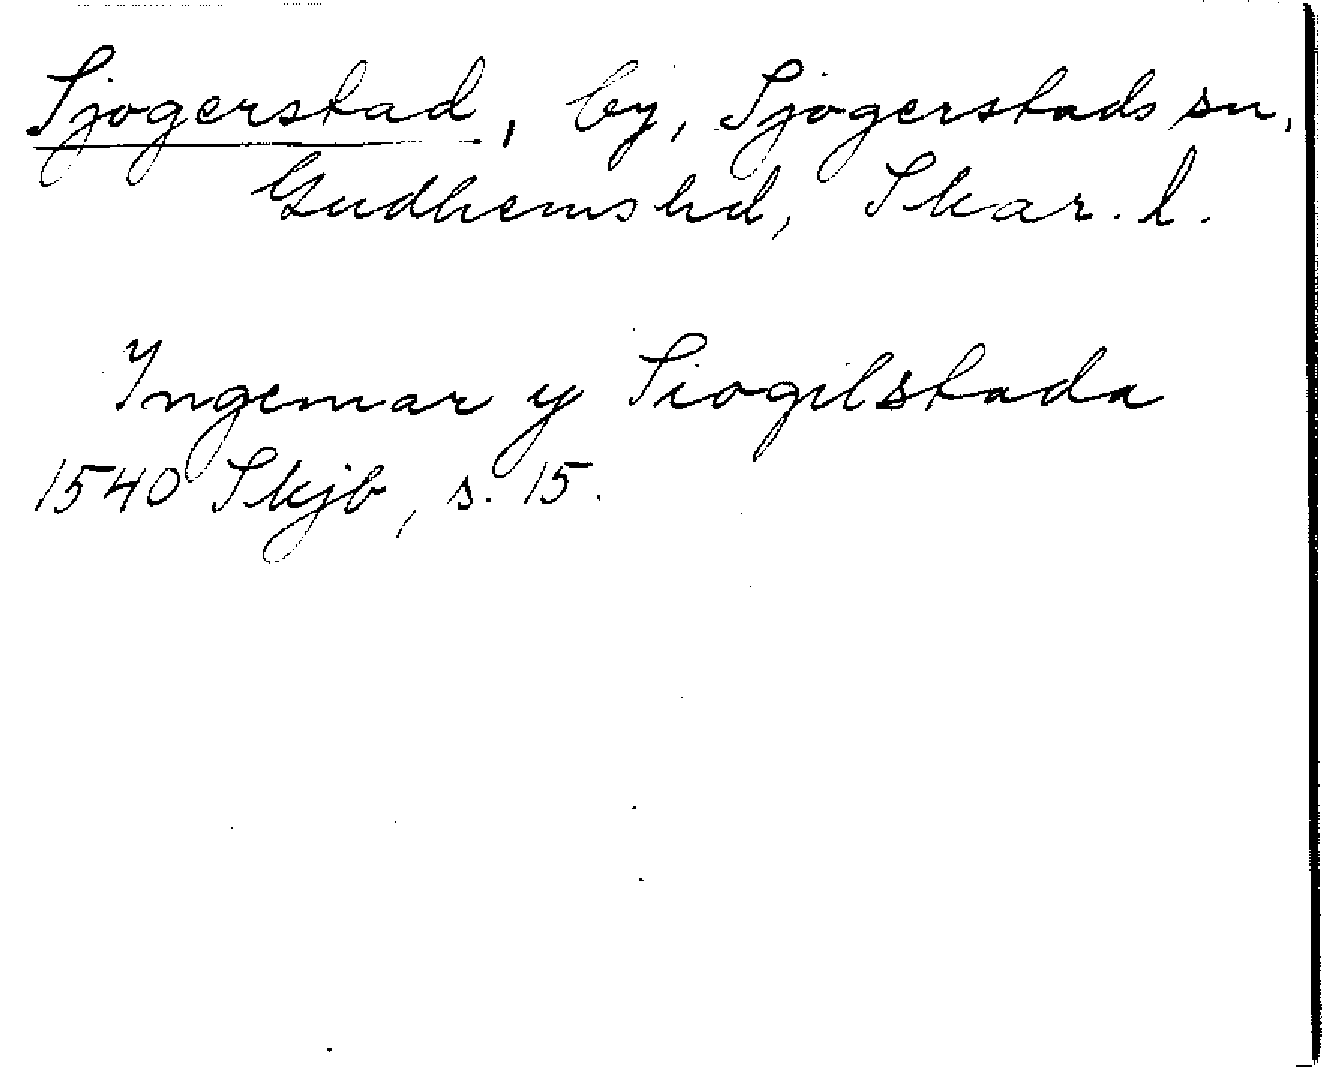 Sjogerstad, by, Sjogerstads sn,
Gudhems hd, Skar. l.
Ingemar y Siogilstada
1540 Skjb, s. 15.